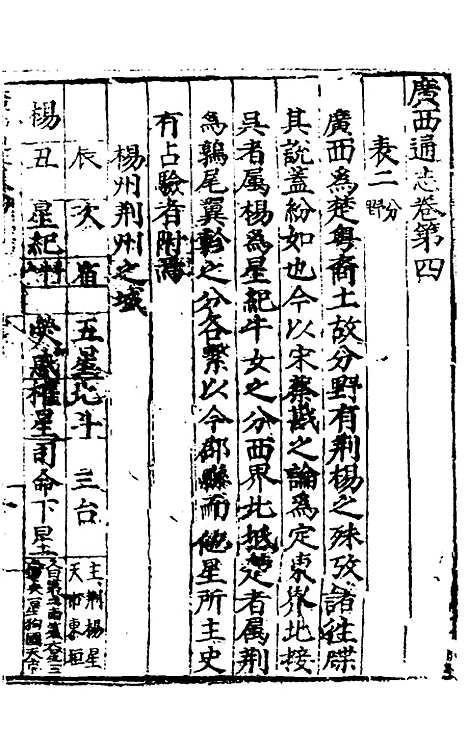 廣西通志卷第四
表二 分野
廣西為楚粤裔土故分野有荆楊之殊攷諸徃牒
其說蓋紛如也今以宋蔡戡之論為定東界北接
吳者属楊為星紀牛女之分西界北抵楚者属荆
為鶉尾翼軫之分各繫以今郡縣而他星所主史
有占驗者附焉
楊州荆州之域
辰 次 宿 五星 北斗 三台 主荆楊星 天市東垣
楊 丑 星紀 斗牛 熒惑 權星 司命下星